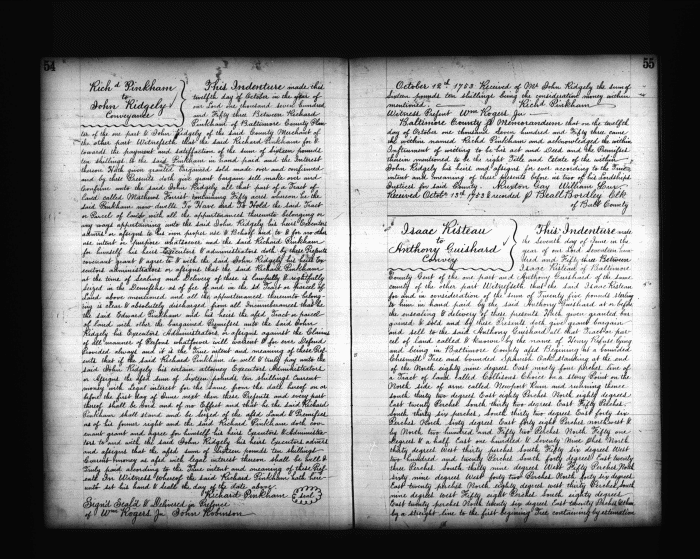 54
Rich'd Pinkham
to
John Ridgely
Conveyance
This Indenture made this
twelfth day of October in the year of
our Lord one thousand seven hundred
and Fifty three Between Richard
Pinkham of Baltimore County Plan
ter of the one part & John Ridgely of the said County Merchant of
the other part Witnesseth that the said Richard Pinkham for &
towards the payment and satisfaction of the sum of sixteen pounds
ten shillings to the said Pinkham in hand paid and the Interest
thereon Hath given granted Bargained sold made over and confirmed
and by these Presents doth give grant bargain sell make over and
Confirm unto the said John Ridgely all that part of a Tract of
land called Matthews Forest containing Fifty acres whereon he the
said Pinkham now dwells To Have and To Hold the said Tract
or Parcel of Land with all the appurtenances thereunto belonging or
any ways appertaining unto the said John Ridgely his heirs Executors
admrs or assigns to the own proper use & Behoof and to & for no other
use intent or purpose whatsoever and the said Richard Pinkham
for himself his heirs Executors & administrators doth by these Presents
covenant grant & agree to & with the said John Ridgely his heirs Ex
ecutors administrators or assigns that the said Richard Pinkham
at the time of Sealing and Delivery of these is Lawfully & rightfully
seized in the Demesne as of fee of and in the sd Tract or parcel of
Land above mentioned and all the appurtenances thereunto belong
ing is clear & absolutely discharged from all Incumbrances that he
the said Edward Pinkham and his heirs the afsd Tract or parcel
of land and other the bargained Premises unto the said John
Ridgely his Executors Administrators or assigns against the Claims
of all manner of Persons whatsoever will warrant & for ever Defend
Provided always and it is the True intent and meaning of these Pre
sents that if the said Richard Pinkham do well & truly pay unto the
said John Ridgely his certain attorney Executors Administrators
or Assigns the afsd sum of Sixteen pounds ten shillings Current
money with Legal interest for the same from the date hereof on or
before the first day of June next then these Presents and every part
thereof shall be void and of no Effect and that he the said Richard
Pinkham shall stand and be seized of the afsd Land & Premises
as of his former right and the said Richard Pinkham doth cov
enant grant and agree for himself his heirs Executors & Administra
tors to and with the said John Ridgely his heirs Executors admrs
and assigns that the afsd sum of Sixteen pounds ten shillings
Current money as afsd with legal interest thereon shall be well &
Truly paid according to the True intent and meaning of these Pre
sents In Witness Whereof the said Richard Pinkham hath here
unto set his hand & seal the day & date above
Richard Pinkham seal
Sign'd Seal'd & Delivered in Presence
of Wm Rogers Jr John Robinson
55
October 12th 1753 Received of Mr John Ridgely the sum of
sixteen pounds ten shillings being the consideration money within
mentioned Rich'd Pinkham
Witness Present Wm Rogers Jr
Baltimore County Sc Memorandum that on the twelfth
day of October one thousand seven hundred and Fifty three came
the within named Rich'd Pinkham and acknowledged the within
Instrument of writing to be his act and deed and the Premises
therein mentioned to be the right Title and Estate of the within
John Ridgely his heirs and assigns for ever according to the True
intent and meaning of these presents before us two of his Lordships
Justices for said County
Received October 13th 1753 & recorded p Beall Bordley Clk
of Balt County
Isaac Risteau
to
Anthony Guishard
Convey
This Indenture made
the Seventh day of June in the
year of our Lord Seventeen hun
dred and Fifty three Between
Isaac Risteau of Baltimore
County and Anthony Guishard of the same
county of the other part Witnesseth that the said Isaac Risteau
for and in consideration of the sum of Twenty five pounds sterling
to him in hand paid by the said Anthony Guishard at or before
the ensealing & delivery of these presents Hath given granted bar
gained & sold and by these Presents doth give grant bargain
and sell to the said Anthony Guishard all that Tract or par
cel of land called & known by the name of Henry Refuse lying
and being in Baltimore County afsd Beginning at a bounded
Chesnutt Tree and bounded Spanish Oak standing at the end
of the North eighty nine degrees East ninety four perches line of
a Tract of Land called Cottisons Choice on a stony Point on the
North side of a run called Newport Run and running thence
South thirty two degrees East eighty Perches North eighty degrees
East twenty Perches South thirty two degrees East Fifty Perches
South thirty six perches South thirty two degrees East forty six
Perches North sixty degrees East forty eight Perches northwest &
by North two hundred and Fifty two Perches North Fifty one
degrees & a half East one hundred & Seventy Nine Phes North
thirty degrees West thirty perches South Fifty six degrees West
two hundred and twenty Perches South forty degrees East twenty
three Perches South thirty nine degrees West Fifty Perches North
sixty nine degrees West forty two Perches North forty six degrees
East twenty perches North eighty degrees West thirty Perches South
nine degrees West Fifty eight Perches South eighty degrees
East twenty perches North twenty six degrees East twenty Perches then
by a straight line to the first beginning Tree containing by estimation